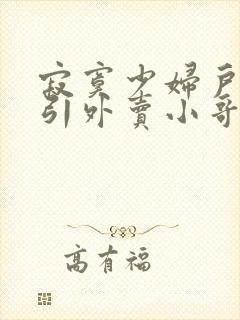 寂寞少婦戶
引外賣小哥
高有福